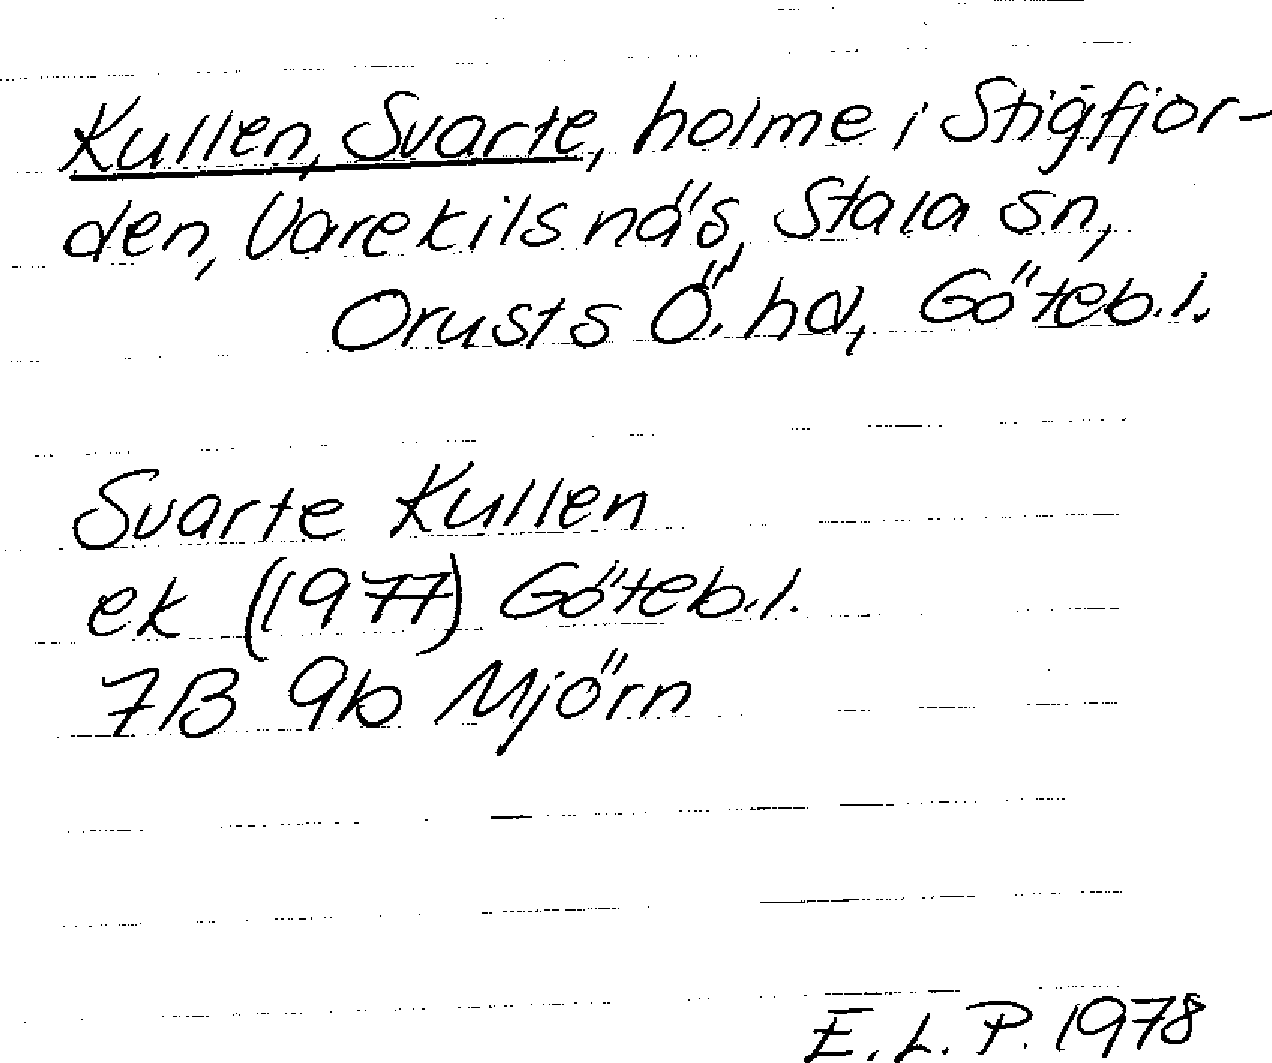 Kullen, Svarte, holme i Stigfjor-
den, Varekilsnäs, Stala sn,
Orusts Ö. hd, Göteb.l.
Svarte Kullen
ek (1977) Göteb.l.
7B 9b Mjörn
E.L.P. 1978